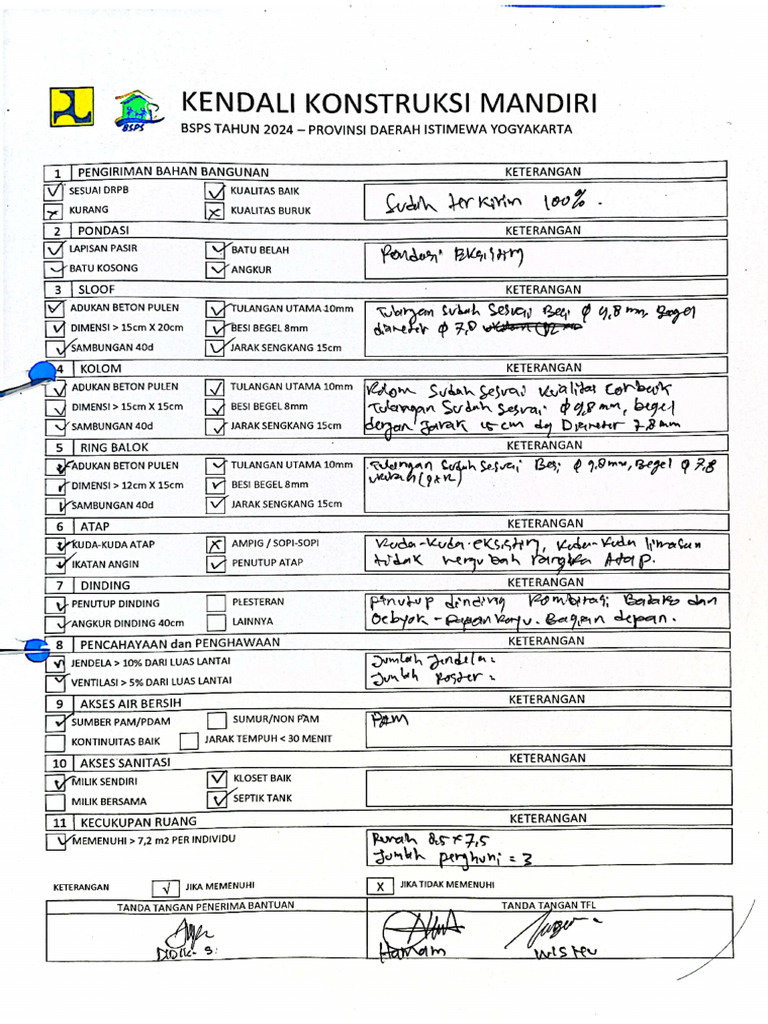 BSPS
KENDALI KONSTRUKSI MANDIRI
BSPS TAHUN 2024 – PROVINSI DAERAH ISTIMEWA YOGYAKARTA
1 PENGIRIMAN BAHAN BANGUNAN KETERANGAN
✓ SESUAI DRPB ✓ KUALITAS BAIK
x KURANG x KUALITAS BURUK
Sudah terkirim 100%.
2 PONDASI KETERANGAN
✓ LAPISAN PASIR ✓ BATU BELAH
✓ BATU KOSONG ✓ ANGKUR
Pondasi Eksisting
3 SLOOF KETERANGAN
✓ ADUKAN BETON PULEN ✓ TULANGAN UTAMA 10mm
✓ DIMENSI > 15cm X 20cm ✓ BESI BEGEL 8mm
✓ SAMBUNGAN 40d ✓ JARAK SENGKANG 15cm
Tulangan sudah sesuai Besi φ 9,8 mm, Begel
diameter φ 7,8
4 KOLOM KETERANGAN
✓ ADUKAN BETON PULEN ✓ TULANGAN UTAMA 10mm
✓ DIMENSI > 15cm X 15cm ✓ BESI BEGEL 8mm
✓ SAMBUNGAN 40d ✓ JARAK SENGKANG 15cm
Kolom sudah sesuai kualitas cor baik
Tulangan sudah sesuai φ 9,8 mm, begel
dengan Jarak 15 cm dg Diameter 7,8mm
5 RING BALOK KETERANGAN
✓ ADUKAN BETON PULEN ✓ TULANGAN UTAMA 10mm
✓ DIMENSI > 12cm X 15cm ✓ BESI BEGEL 8mm
✓ SAMBUNGAN 40d ✓ JARAK SENGKANG 15cm
Tulangan sudah sesuai Besi φ 9,8mm, Begel φ 7,8
ukuran
6 ATAP KETERANGAN
✓ KUDA-KUDA ATAP x AMPIG / SOPI-SOPI
✓ IKATAN ANGIN ✓ PENUTUP ATAP
Kuda-kuda eksisting, kuda-kuda limasan
tidak merubah rangka Atap.
7 DINDING KETERANGAN
✓ PENUTUP DINDING PLESTERAN
✓ ANGKUR DINDING 40cm LAINNYA
Penutup dinding Kombinasi Batako dan
Gebyok - Papan kayu. Bagian depan.
8 PENCAHAYAAN dan PENGHAWAAN KETERANGAN
✓ JENDELA > 10% DARI LUAS LANTAI
✓ VENTILASI > 5% DARI LUAS LANTAI
Jumlah Jendela :
Jumlah Roster :
9 AKSES AIR BERSIH KETERANGAN
✓ SUMBER PAM/PDAM SUMUR/NON PAM
KONTINUITAS BAIK JARAK TEMPUH < 30 MENIT
PAM
10 AKSES SANITASI KETERANGAN
✓ MILIK SENDIRI ✓ KLOSET BAIK
MILIK BERSAMA ✓ SEPTIK TANK
11 KECUKUPAN RUANG KETERANGAN
✓ MEMENUHI > 7,2 m2 PER INDIVIDU
Rumah 8,5 × 7,5
Jumlah penghuni = 3
KETERANGAN √ JIKA MEMENUHI X JIKA TIDAK MEMENUHI
TANDA TANGAN PENERIMA BANTUAN TANDA TANGAN TFL
DIDIK S. Hamam